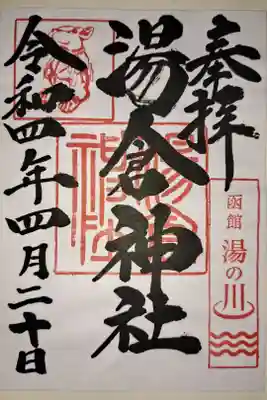 奉拝
函館
湯の川
湯倉神社
湯倉神社
令和四年四月二十日